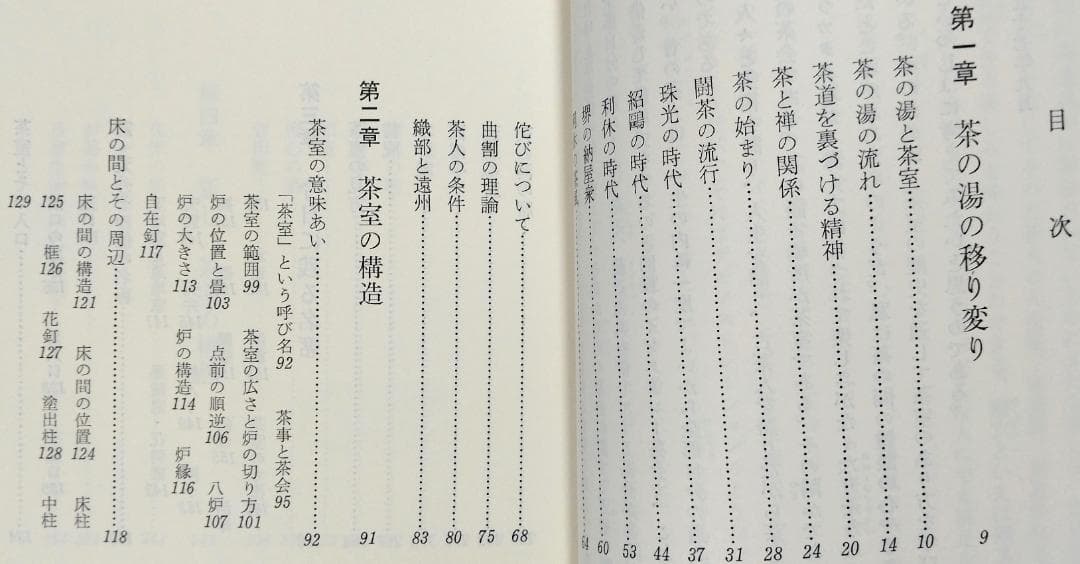 目次
第一章 茶の湯の移り変り 9
茶の湯と茶室 10
茶の湯の流れ 14
茶道を裏づける精神 20
茶と禅の関係 24
茶の始まり 28
闘茶の流行 31
珠光の時代 37
紹鷗の時代 44
利休の時代 53
堺の納屋衆 60
64
侘びについて 68
曲割の理論 75
茶人の条件 80
織部と遠州 83
第二章 茶室の構造 91
茶室の意味あい 92
「茶室」という呼び名 92 茶事と茶会 95
茶室の範囲 99 茶室の広さと炉の切り方 101
炉の位置と畳 103 点前の順逆 106 八炉 107
炉の大きさ 113 炉の構造 114 炉縁 116
自在釘 117
床の間とその周辺 118
床の間の構造 121 床の間の位置 124 床柱
125 框 126 花釘 127 塗出柱 128 中柱
129